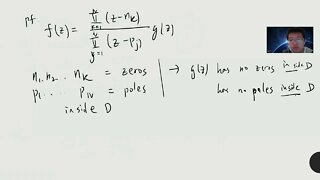 pf.
f(z) = \frac{\prod_{k=1}^{K} (z-n_k)}{\prod_{j=1}^{N} (z-p_j)} g(z)
n_1, n_2 .. n_K = zeros → g(z) has no zeros inside D
p_1 ..... p_N = poles has no poles inside D
inside D